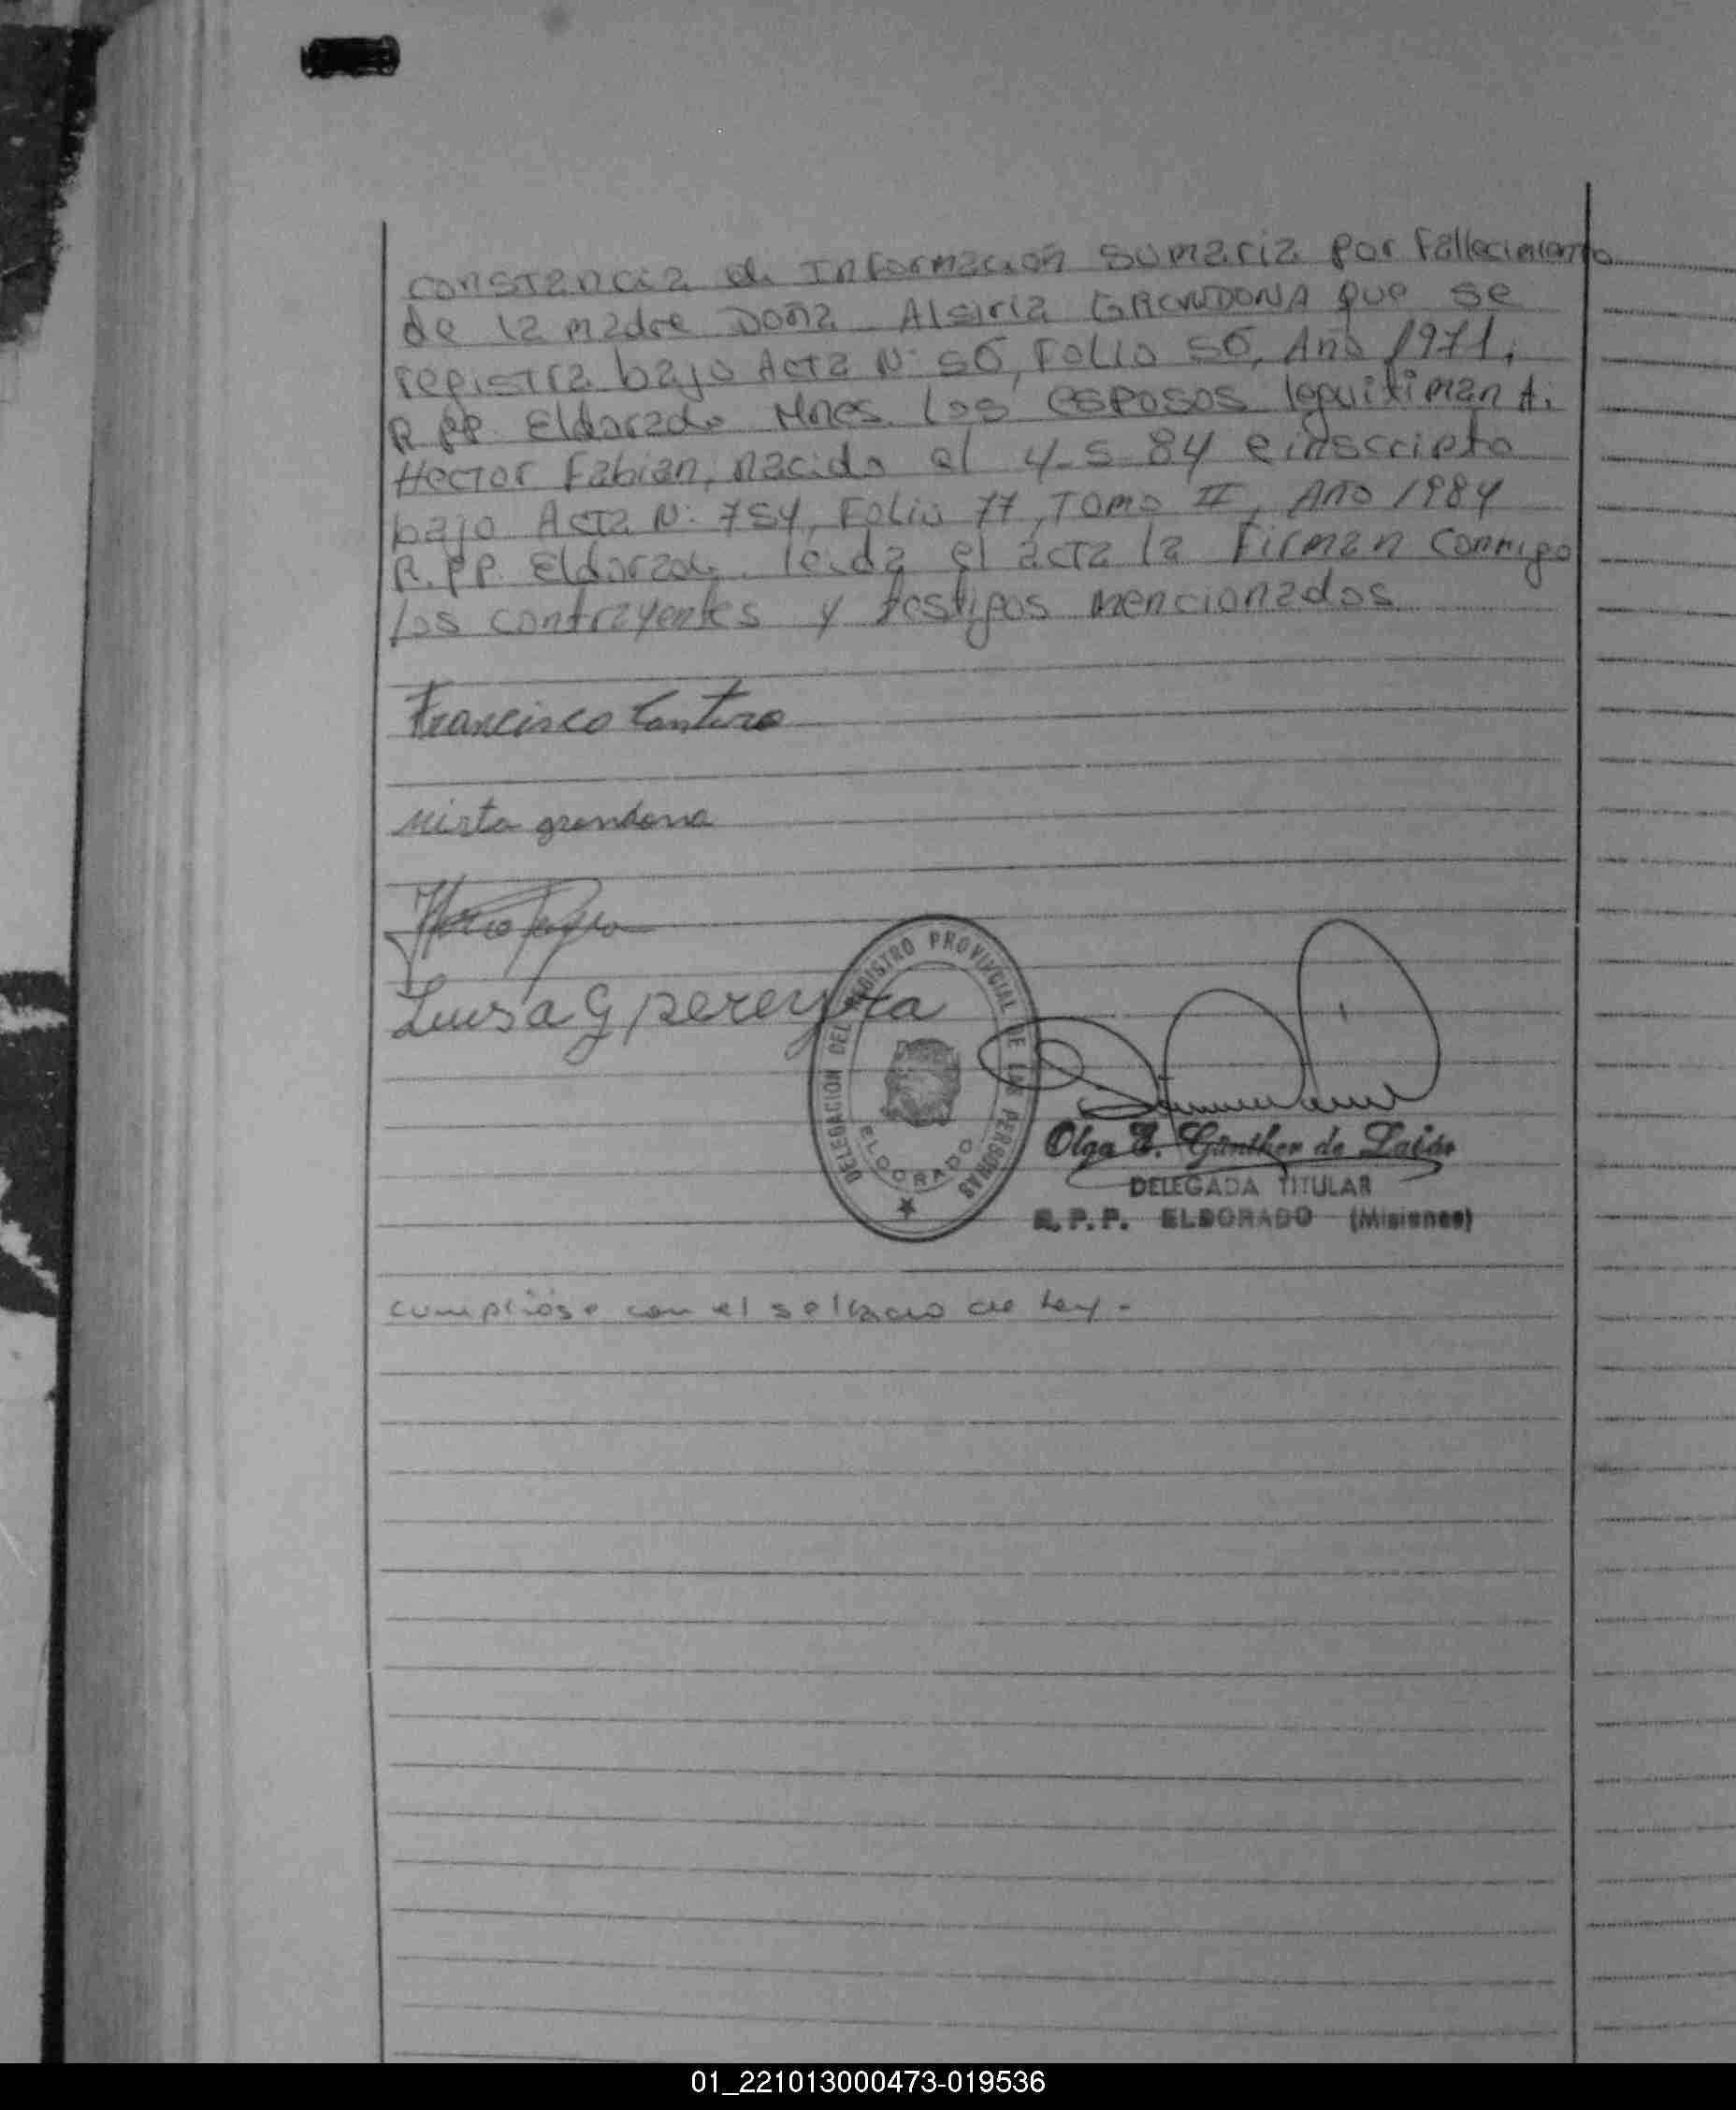 constancia de Informacion sumaria por Fallecimiento
de la madre Doña Alsiria GRONDONA que se
registra bajo Acta N: 56, Folio 56, Año 1971,
R PP. Eldorado Mnes. Los esposos leguitiman A:
Hector Fabian, nacido el 4-5 84 e inscripto
bajo Acta N: 754, Folio 77, Tomo II, Año 1984
R.PP. Eldorado. leida el acta la Firman conmigo
los contrayentes y testigos mencionados
Francisco
mirta grondona
Luisa G pereyra
DELEGACION DEL REGISTRO PROVINCIAL DE LAS PERSONAS
ELDORADO
Olga E. Günther de
DELEGADA TITULAR
R.P.P. ELDORADO (Misiones)
cumplióse con el sellado de Ley -
01_221013000473-019536